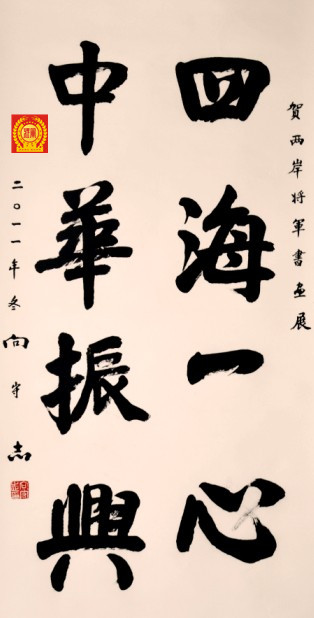 贺两岸将军書画展
四海一心
中華振興
二〇一一年冬 向守志